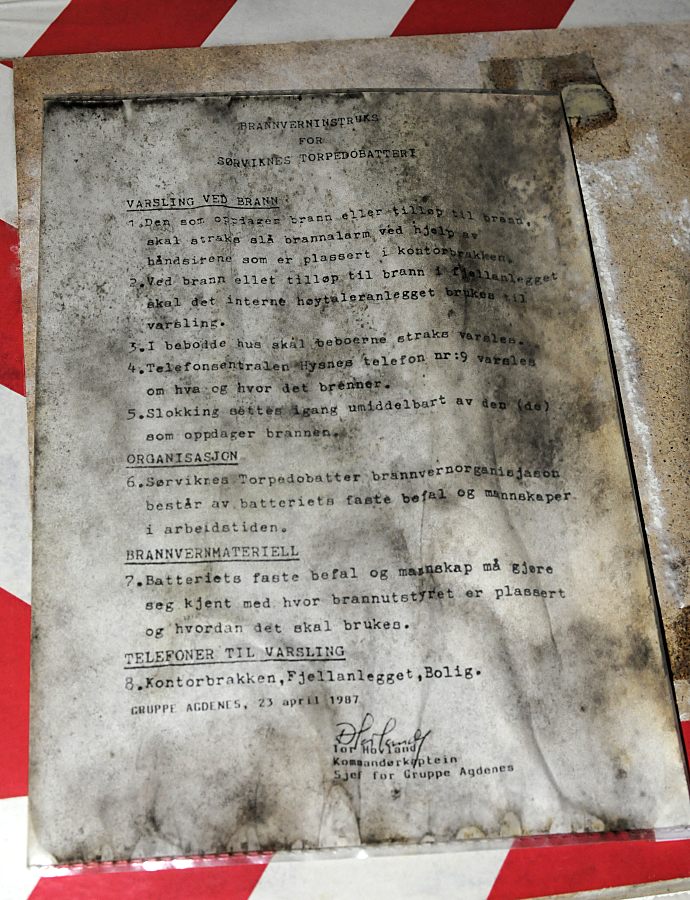 BRANNVERNINSTRUKS
FOR
SØRVIKNES TORPEDOBATTERI
VARSLING VED BRANN
1.Den som oppdager brann eller tilløp til brann,
skal straks slå brannalarm ved hjelp av
håndsirene som er plassert i kontorbrakken.
2.Ved brann ellet tilløp til brann i fjellanlegget
skal det interne høytaleranlegget brukes til
varsling.
3.I bebodde hus skal beboerne straks varsles.
4.Telefonsentralen Hysnes telefon nr:9 varsles
om hva og hvor det brenner.
5.Slokking settes igang umiddelbart av den (de)
som oppdager brannen.
ORGANISASJON
6.Sørviknes Torpedobatter brannvernorganisjason
består av batteriets faste befal og mannskaper
i arbeidstiden.
BRANNVERNMATERIELL
7.Batteriets faste befal og mannskap må gjøre
seg kjent med hvor brannutstyret er plassert
og hvordan det skal brukes.
TELEFONER TIL VARSLING
8.Kontorbrakken,Fjellanlegget,Bolig.
GRUPPE AGDENES, 23 april 1987
Tor Hovland
Kommandørkaptein
Sjef for Gruppe Agdenes